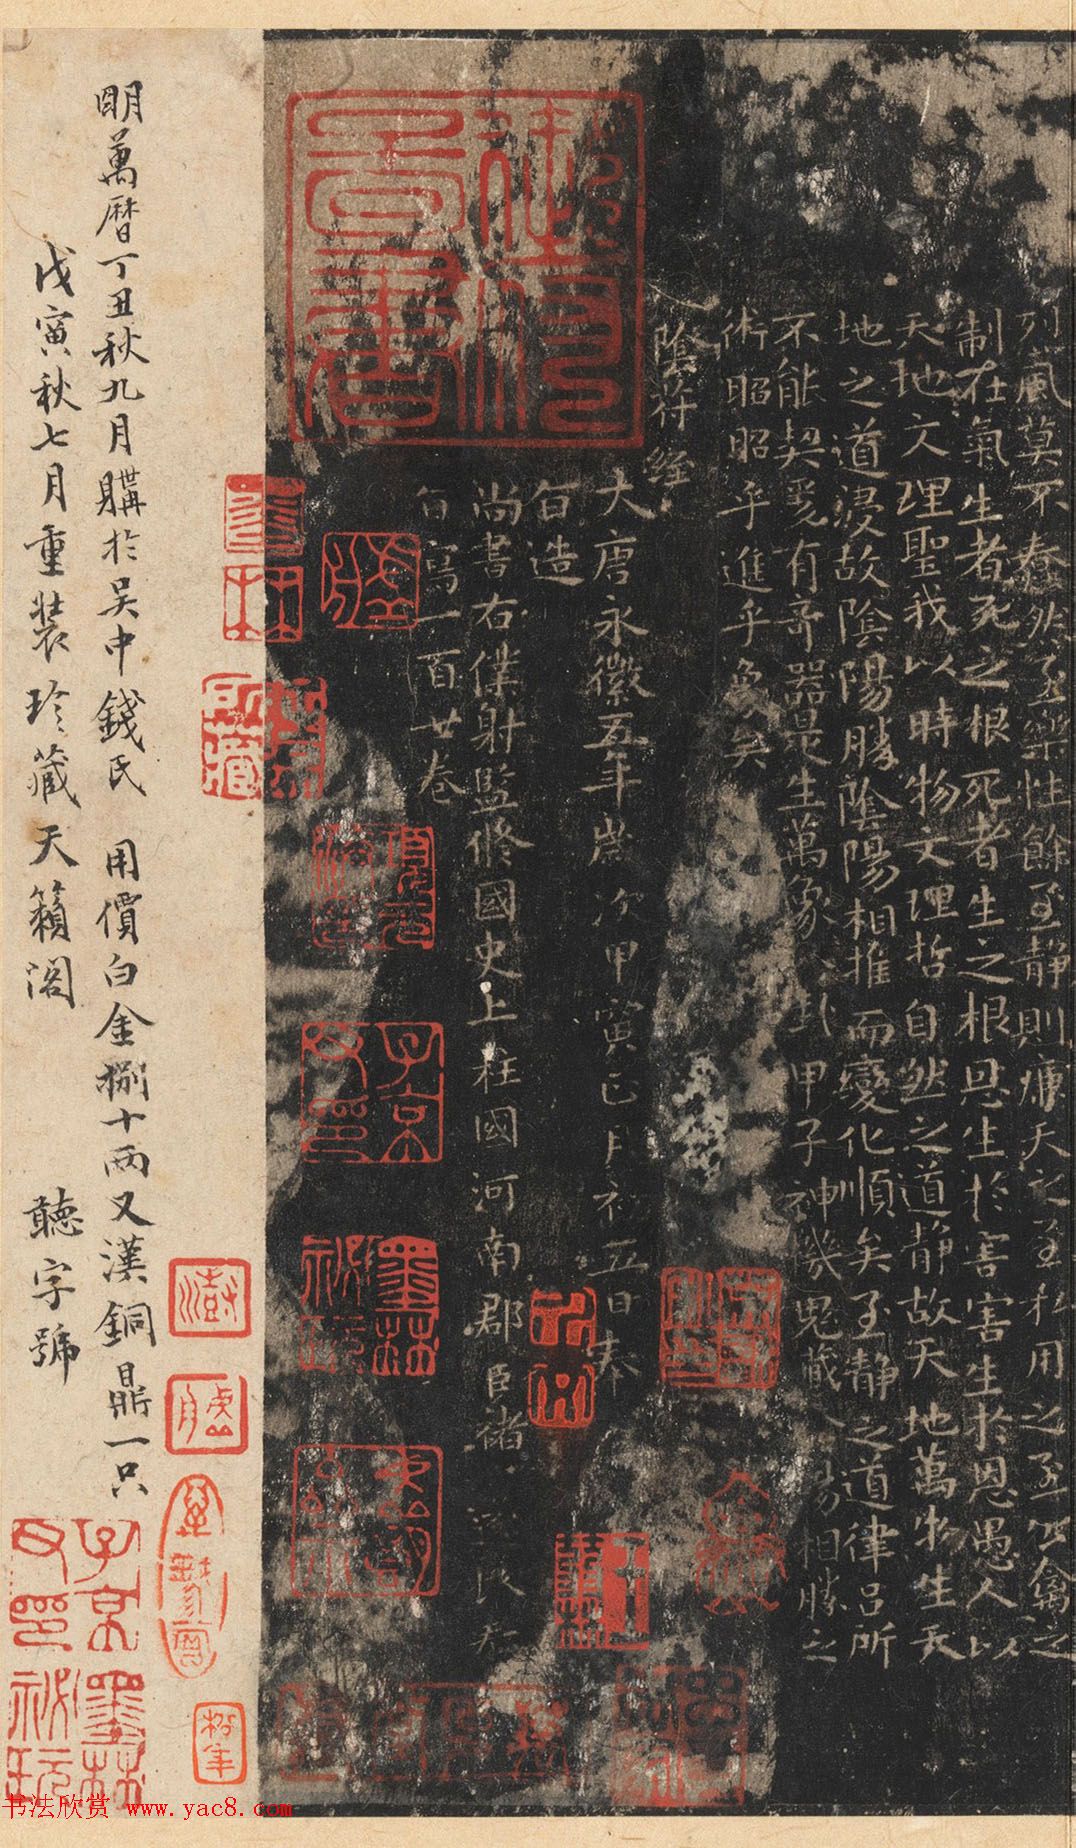 烈風莫不蠢然至樂性餘至靜則廉天之至私用之至公禽之
制在氣生者死之根死者生之根恩生於害害生於恩愚人以
天地文理聖我以時物文理哲自然之道靜故天地萬物生天
地之道浸故陰陽勝陰陽相推而變化順矣至靜之道律呂所
不能契爰有奇器是生萬象八卦甲子神機鬼藏陰陽相勝之
術昭昭乎進乎象矣
陰符經
大唐永徽五年歲次甲寅正月初五日奉
旨造
尚書右僕射監修國史上柱國河南郡臣褚遂良奉
旨寫一百廿卷
明萬曆丁丑秋九月購於吳中錢氏 用價白金捌十兩又漢銅鼎一只
戊寅秋七月重裝珍藏天籟閣 聽字號
子京
父印
墨林
秘玩
子京
父印
墨林
秘玩
松年
书法欣赏 www.yac8.com